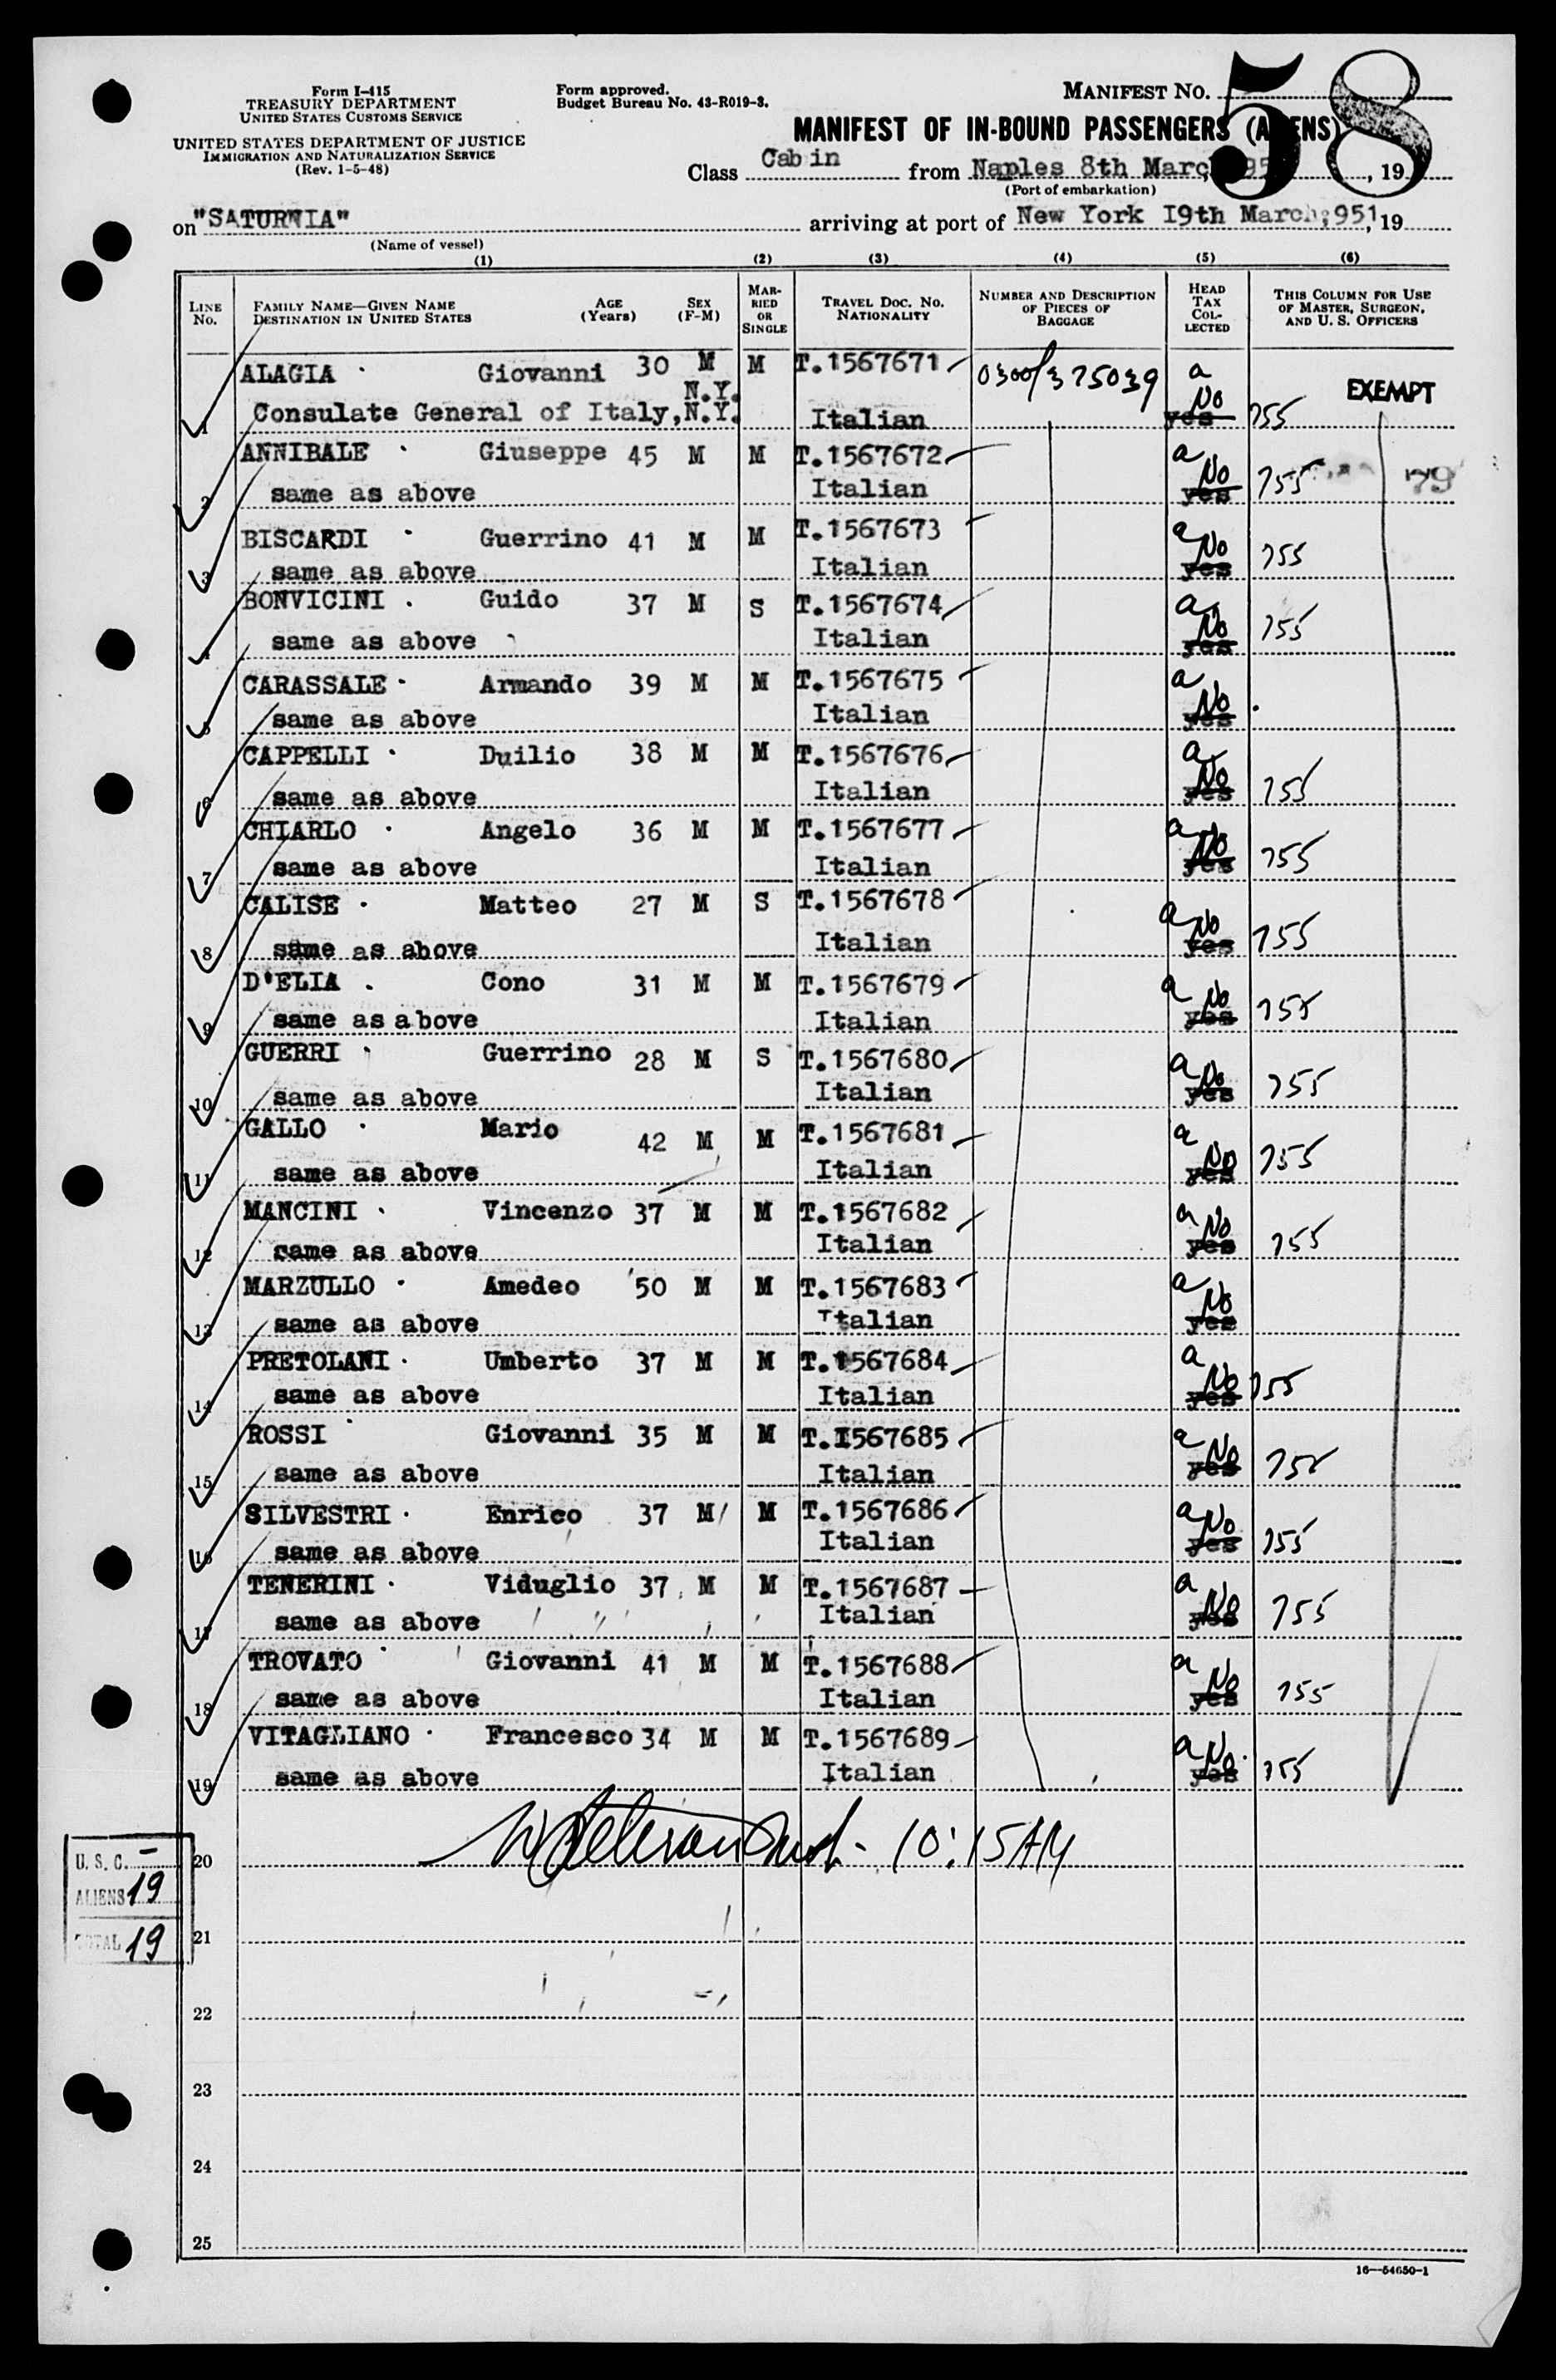 Form I-415
TREASURY DEPARTMENT
UNITED STATES CUSTOMS SERVICE
UNITED STATES DEPARTMENT OF JUSTICE
IMMIGRATION AND NATURALIZATION SERVICE
(Rev. 1-5-48)
Form approved.
Budget Bureau No. 43-R019-3.
MANIFEST NO. 58
MANIFEST OF IN-BOUND PASSENGERS (ALIENS)
Class Cabin from Naples 8th March 195, 19
(Port of embarkation)
on "SATURNIA" arriving at port of New York I9th March;951, 19
(Name of vessel)
(1) (2) (3) (4) (5) (6)
LINE NO. FAMILY NAME—GIVEN NAME DESTINATION IN UNITED STATES AGE (Years) SEX (F-M) MARRIED OR SINGLE TRAVEL DOC. NO. NATIONALITY NUMBER AND DESCRIPTION OF PIECES OF BAGGAGE HEAD TAX COLLECTED THIS COLUMN FOR USE OF MASTER, SURGEON, AND U. S. OFFICERS
ALAGIA Giovanni 30 M M T.1567671 0300/375039 a EXEMPT
N.Y.
1 Consulate General of Italy,N.Y. Italian No yes 755
ANNIBALE Giuseppe 45 M M T.1567672 a
2 same as above Italian No yes 755 79
BISCARDI Guerrino 41 M M T.1567673 a
3 same as above Italian No yes 755
BONVICINI Guido 37 M S T.1567674 a
4 same as above Italian No yes 755
CARASSALE Armando 39 M M T.1567675 a
5 same as above Italian No yes
CAPPELLI Duilio 38 M M T.1567676 a
6 same as above Italian No yes 755
CHIARLO Angelo 36 M M T.1567677 a
7 same as above Italian No yes 755
CALISE Matteo 27 M S T.1567678 a
8 same as above Italian No yes 755
D'ELIA Cono 31 M M T.1567679 a
9 same as above Italian No yes 755
GUERRI Guerrino 28 M S T.1567680 a
10 same as above Italian No yes 755
GALLO Mario 42 M M T.1567681 a
11 same as above Italian No yes 755
MANCINI Vincenzo 37 M M T.1567682 a
12 same as above Italian No yes 755
MARZULLO Amedeo 50 M M T.1567683 a
13 same as above Italian No yes
PRETOLANI Umberto 37 M M T.1567684 a
14 same as above Italian No yes 755
ROSSI Giovanni 35 M M T.I567685 a
15 same as above Italian No yes 755
SILVESTRI Enrico 37 M M T.1567686 a
16 same as above Italian No yes 755
TENERINI Viduglio 37 M M T.1567687 a
17 same as above Italian No yes 755
TROVATO Giovanni 41 M M T.1567688 a
18 same as above Italian No yes 755
VITAGLIANO Francesco 34 M M T.1567689 a
19 same as above Italian No yes 755
20 10:15AM
U. S. C. –
ALIENS 19
TOTAL 19
21
22
23
24
25
16—54650-1